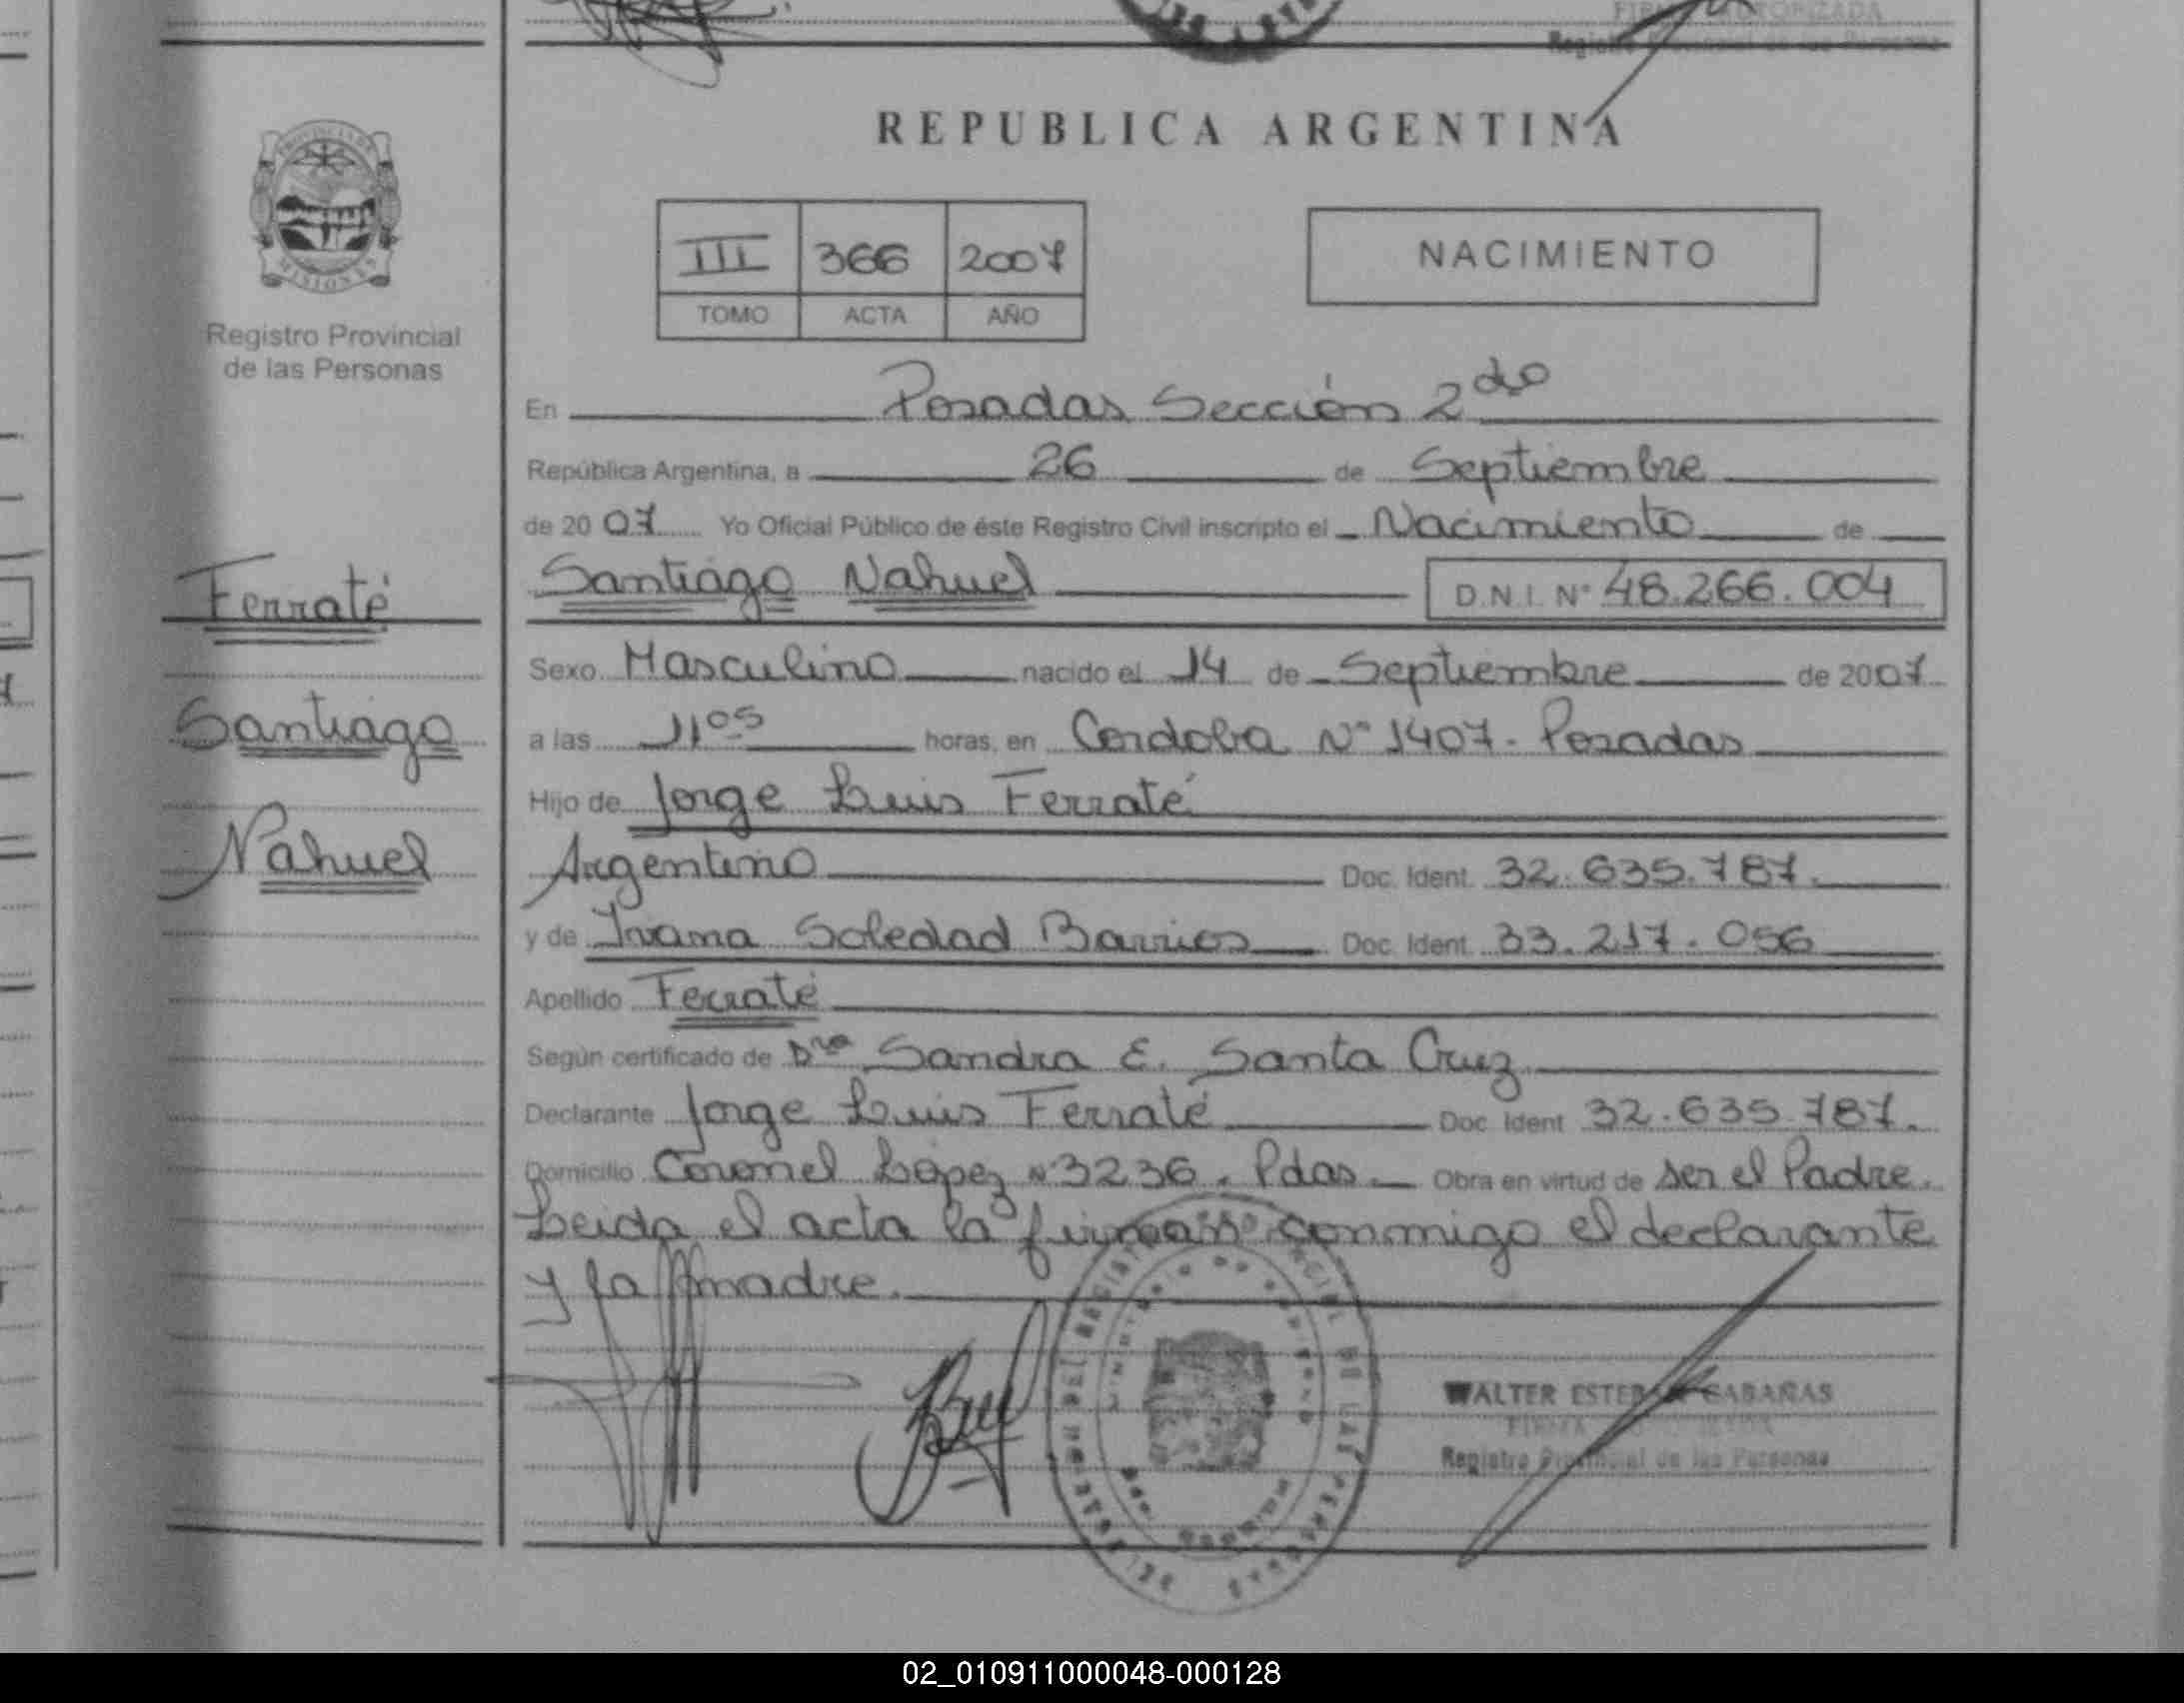 REPUBLICA ARGENTINA
III 366 2007
TOMO ACTA AÑO
NACIMIENTO
Registro Provincial
de las Personas
En Posadas Sección 2do
República Argentina, a 26 de Septiembre
de 20 07 Yo Oficial Público de éste Registro Civil inscripto el Nacimiento de
Santiago Nahuel D.N.I. N° 48.266.004
Ferraté
Santiago
Nahuel
Sexo Masculino nacido el 14 de Septiembre de 2007
a las 11 05 horas, en Cordoba N° 1407. Posadas
Hijo de Jorge Luis Ferraté
Argentino Doc. Ident. 32.635.787.
y de Ivana Soledad Barrios Doc. Ident. 33.217.056
Apellido Ferraté
Según certificado de Dra Sandra E. Santa Cruz
Declarante Jorge Luis Ferraté Doc. Ident 32.635.787.
Domicilio Coronel López N° 3236. Pdas. Obra en virtud de ser el Padre.
Leida el acta la firman conmigo el declarante
y la madre.
WALTER ESTEBAN CABAÑAS
FIRMA
Registro Provincial de las Personas
02_010911000048-000128